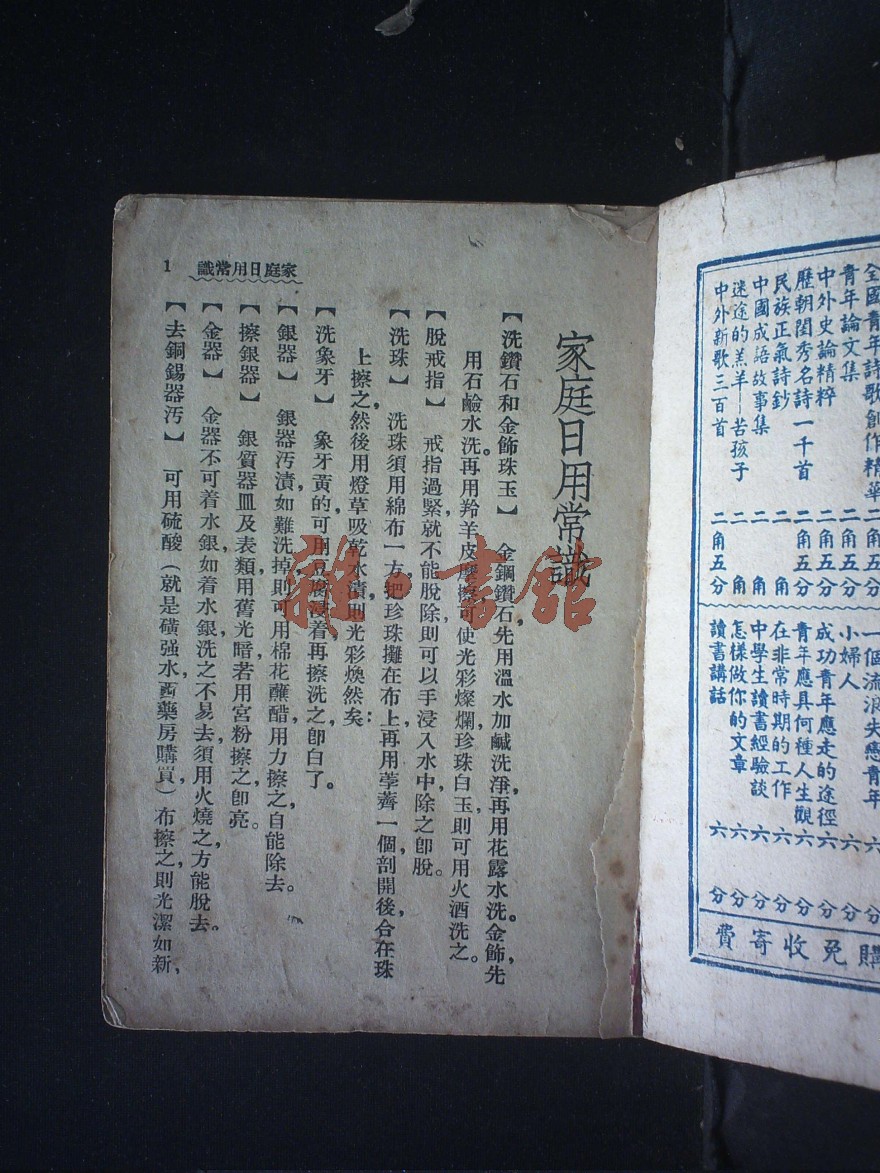 全國青年詩歌創作精華 二角五分
青年論文集 二角五分
中外史論精粹 二角五分
歷朝閨秀名詩一千首 二角五分
民族正氣詩鈔 二角
中國成語故事集 二角
迷途的羔羊—苦孩子 二角
中外新歌三百首 二角五分
一個流浪失戀青年 六分
小婦人 六分
成功青年應走的途徑 六分
青年應具何種人生觀 六分
在非常時期的工作 六分
中學生讀書經驗談 六分
怎樣做你的文章 六分
讀書講話 六分
購免收寄費
家庭日用常識
【洗鑽石和金飾珠玉】 金鋼鑽石先用溫水加鹹洗淨，再用花露水洗。金飾，先
用石鹼水洗。再用羚羊皮摩擦可使光彩燦爛，珍珠白玉則可用火酒洗之。
【脫戒指】 戒指過緊，就不能脫除，則可以手浸入水中除之，卽脫。
【洗珠】 洗珠須用綿布一方，把珍珠攤在布上，再用荸薺一個剖開後，合在珠
上擦之，然後用燈草吸乾水漬，則光彩煥然矣：
【洗象牙】 象牙黃的，可用豆腐浸着，再擦洗之，卽白了。
【銀器】 銀器汚漬，如難洗掉，則可用棉花蘸醋，用力擦之，自能除去。
【擦銀器】 銀質器皿及表類，用舊光暗，若用宮粉擦之卽亮。
【金器】 金器不可着水銀，如着水銀，洗之不易去，須用火燒之，方能脫去。
【去銅錫器汚】 可用硫酸（就是磺强水，西藥房購買）布擦之，則光潔如新，
家庭日用常識 1
雜·書館